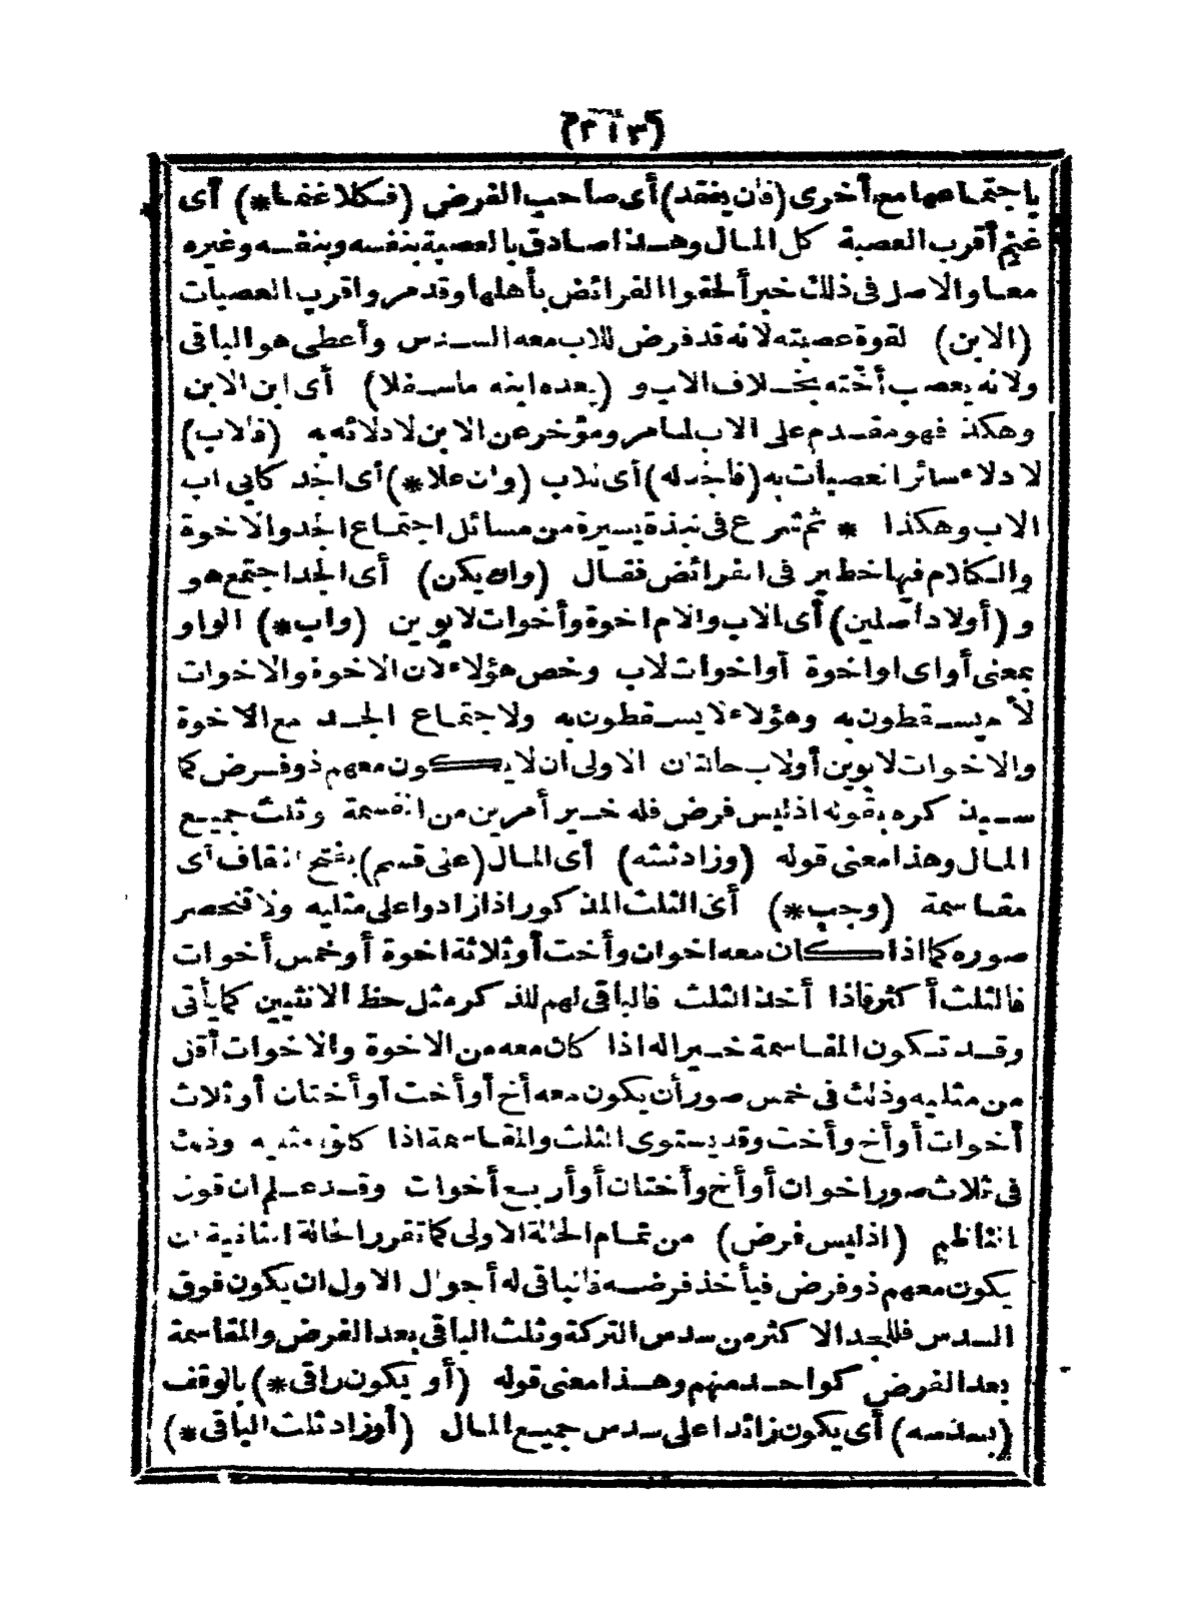 (٢١٣)
باجتماعها مع أخرى (فان يفقد) أى صاحب الفرض (فكلا غنما*) أى
غنم أقرب العصبة كل المال وهذا صادق بالعصبة بنفسه وبنفسه وغيره
معا والاصل فى ذلك خبر ألحقوا الفرائض بأهلها وقدمر واقرب العصبات
(الابن) لقوة عصبته لانه قد فرض للاب معه السدس وأعطى هو الباقى
ولانه يعصب أخته بخلاف الاب و (بعده ابنه ماسفلا) أى ابن الابن
وهكذا فهو مقدم على الاب لما مر ومؤخر عن الابن لادلائه به (فالاب)
لادلاء سائر العصبات به (فالجد له) أى للاب (وان علا*) أى الجد كابى اب
الاب وهكذا * ثم شرع فى نبذة يسيرة من مسائل اجتماع الجد والاخوة
والكلام فيها خطير فى الفرائض فقال (وان يكن) أى الجد اجتمع هو
و (أولاد أصلين) أى الاب والام اخوة وأخوات لابوين (واب*) الواو
بمعنى أو اى او اخوة أو اخوات لاب وخص هؤلاء لان الاخوة والاخوات
لأم يسقطون به وهؤلاء لا يسقطون به ولاجتماع الجد مع الاخوة
والاخوات لابوين أو لاب حالتان الاولى ان لا يكون معهم ذو فرض كما
سيذكره بقوله اذ ليس فرض فله خير أمرين من القسمة وثلث جميع
المال وهذا معنى قوله (وزاد ثلثه) أى المال (عن قسم) بفتح القاف أى
مقاسمة (وجب*) أى الثلث المذكور اذا زادوا على مثليه ولا تنحصر
صوره كما اذا كان معه اخوان وأخت أو ثلاثة اخوة أو خمس أخوات
فالثلث أكثر فاذا أخذ الثلث فالباقى لهم للذكر مثل حظ الانثيين كما يأتى
وقد تكون المقاسمة خيرا له اذا كان معه من الاخوة والاخوات أقل
من مثليه وذلك فى خمس صور أن يكون معه أخ أو أخت أو أختان أو ثلاث
أخوات أو أخ وأخت وقد يستوى الثلث والمقاسمة اذا كانوا مثليه وذلك
فى ثلاث صور اخوان أو أخ وأختان أو أربع أخوات وقد علم ان قول
الناظم (اذ ليس فرض) من تمام الحالة الاولى كما تقرر الحالة الثانية ان
يكون معهم ذو فرض فيأخذ فرضه فالباقى له أحوال الاول ان يكون فوق
السدس فللجد الاكثر من سدس التركة وثلث الباقى بعد الفرض والمقاسمة
بعد الفرض كواحد منهم وهذا معنى قوله (أو يكون راقى*) بالوقف
(بسدسه) أى يكون زائدا على سدس جميع المال (أو زاد ثلث الباقى*)